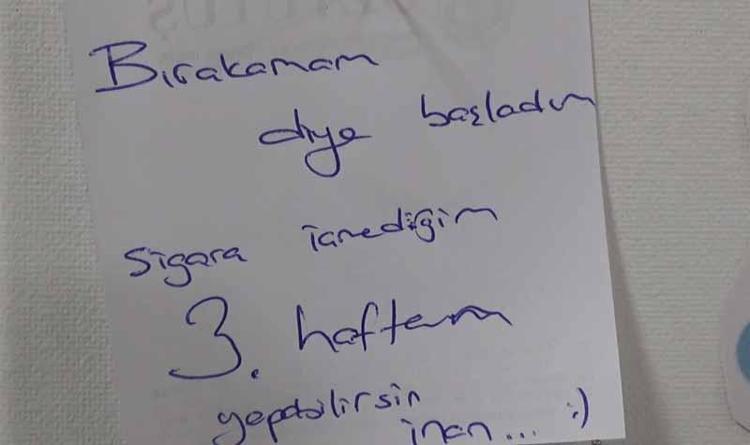 Bırakamam
diye başladım
sigara içmediğim
3. haftam
yapabilirsin
inan... :)